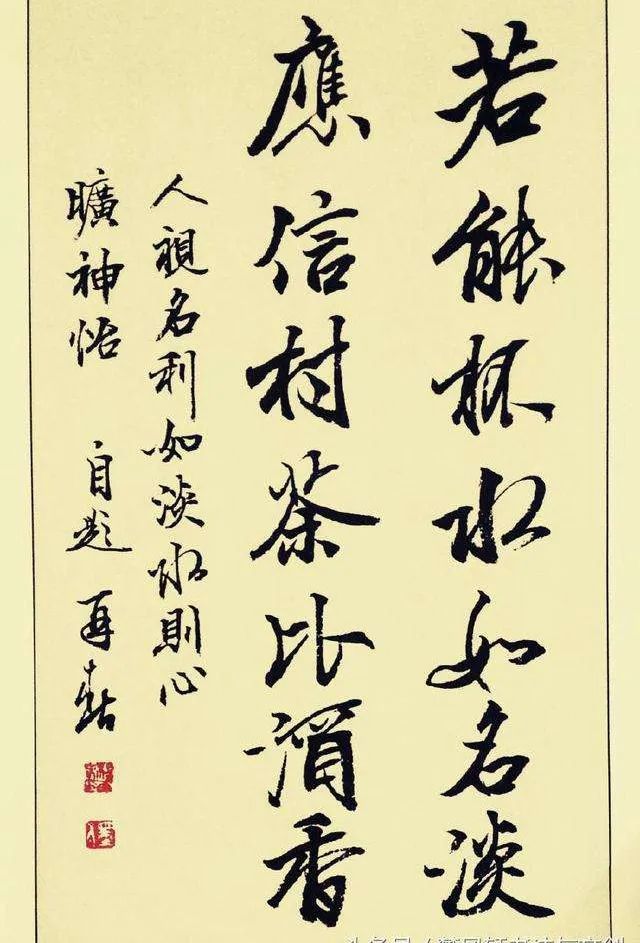 若能杯水如名淡
應信村茶比酒香
人視名利如淡水則心
曠神怡 自題